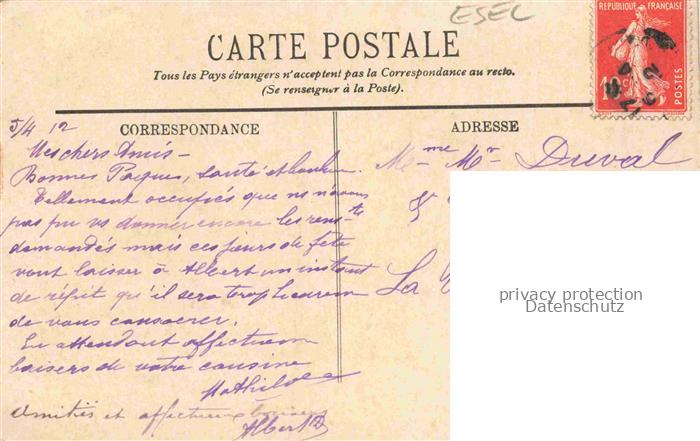 ESEL
RÉPUBLIQUE FRANÇAISE
10c
CARTE POSTALE
Tous les Pays étrangers n'acceptent pas la Correspondance au recto.
(Se renseigner à la Poste).
5/4 12
CORRESPONDANCE
ADRESSE
Mes chers Amis -
Bonnes Pâques, santé et bonheur.
Tellement occupés que ns n'avons
pas pu vs donner encore les rensts
demandés mais ces jours de fête
vont laisser à Albert un instant
de répit qu'il sera trop heureux
de vous consacrer.
En attendant affectueux
baisers de votre cousine
Mathilde
Amitiés et affectueux baisers
Albert D
Mme Mr Duval
La
privacy protection
Datenschutz